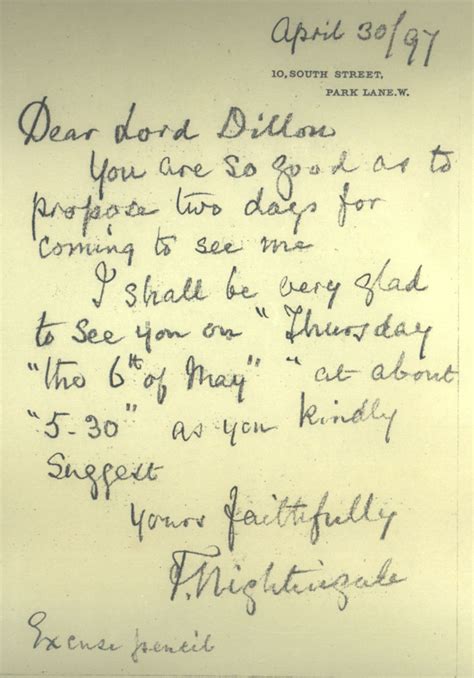 April 30/97
10, SOUTH STREET,
PARK LANE. W.
Dear Lord Dillon
You are so good as to
propose two days for
coming to see me
I shall be very glad
to see you on "Thursday
"the 6th of May" "at about
"5-30" as you kindly
suggest
Yours faithfully
F. Nightingale
Excuse pencil